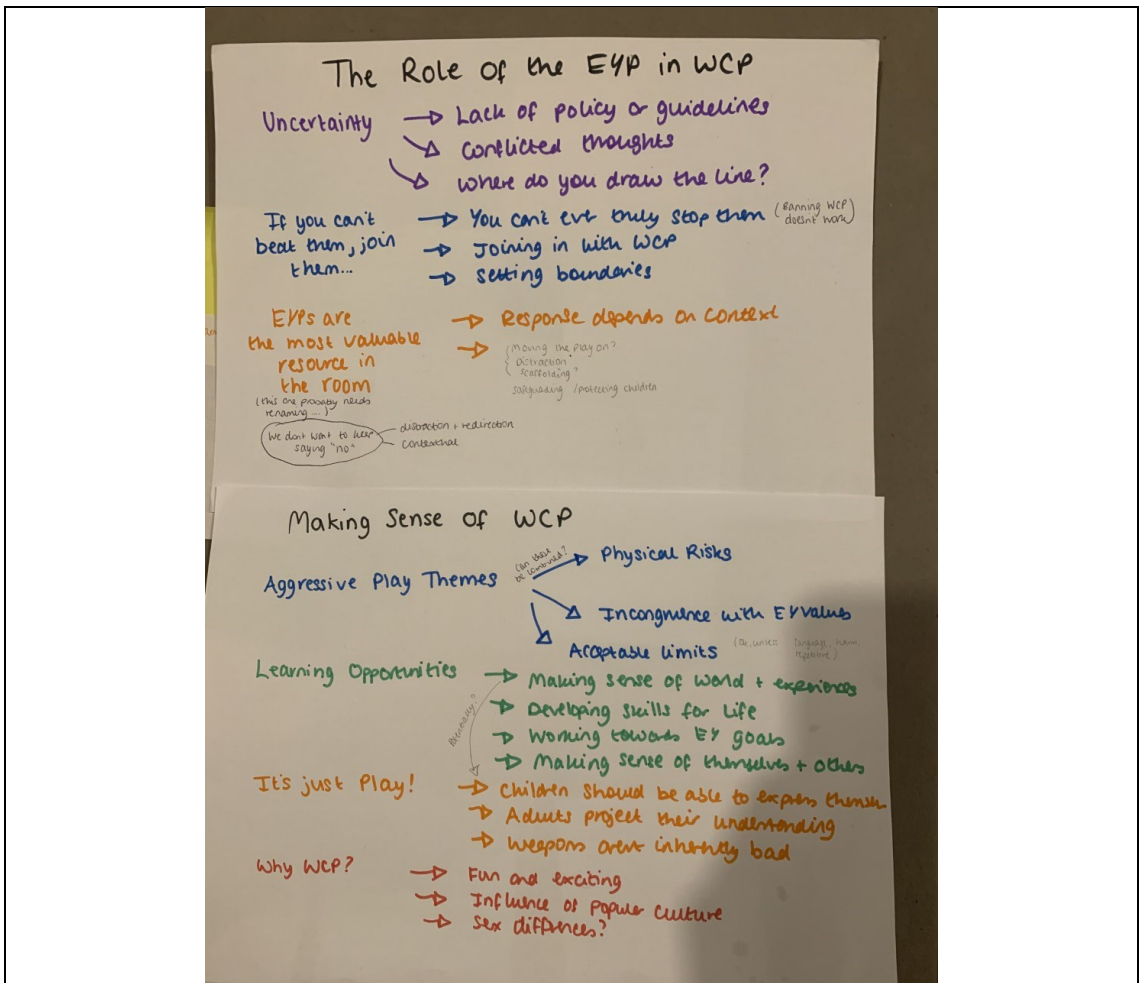 The Role of the EYP in WCP
Uncertainty → Lack of policy or guidelines
→ Conflicted thoughts
→ Where do you draw the line?
If you can't → You can't ever truly stop them (Banning WCP
beat them, join → Joining in with WCP doesn't work)
them... → Setting boundaries
EYPs are → Response depends on context
the most valuable →
resource in
the room
(Moving the play on?
Distraction
Scaffolding?
safeguarding / protecting children
(this one probably needs
renaming ...)
We don't want to keep
saying "no"
distraction + redirection
contextual
Making Sense of WCP
Aggressive Play Themes
(can these
be combined?
→ Physical Risks
→ Incongruence with EY values
→ Acceptable limits
(Ok, unless language, harm,
repetitive)
Learning Opportunities → Making sense of world + experiences
→ Developing skills for life
→ Working towards EY goals
→ Making sense of themselves + others
It's just Play! → Children should be able to express themse
→ Adults project their understanding
→ Weapons arent inherently bad
Why WCP? → Fun and exciting
→ Influence of popular culture
→ Sex differences?